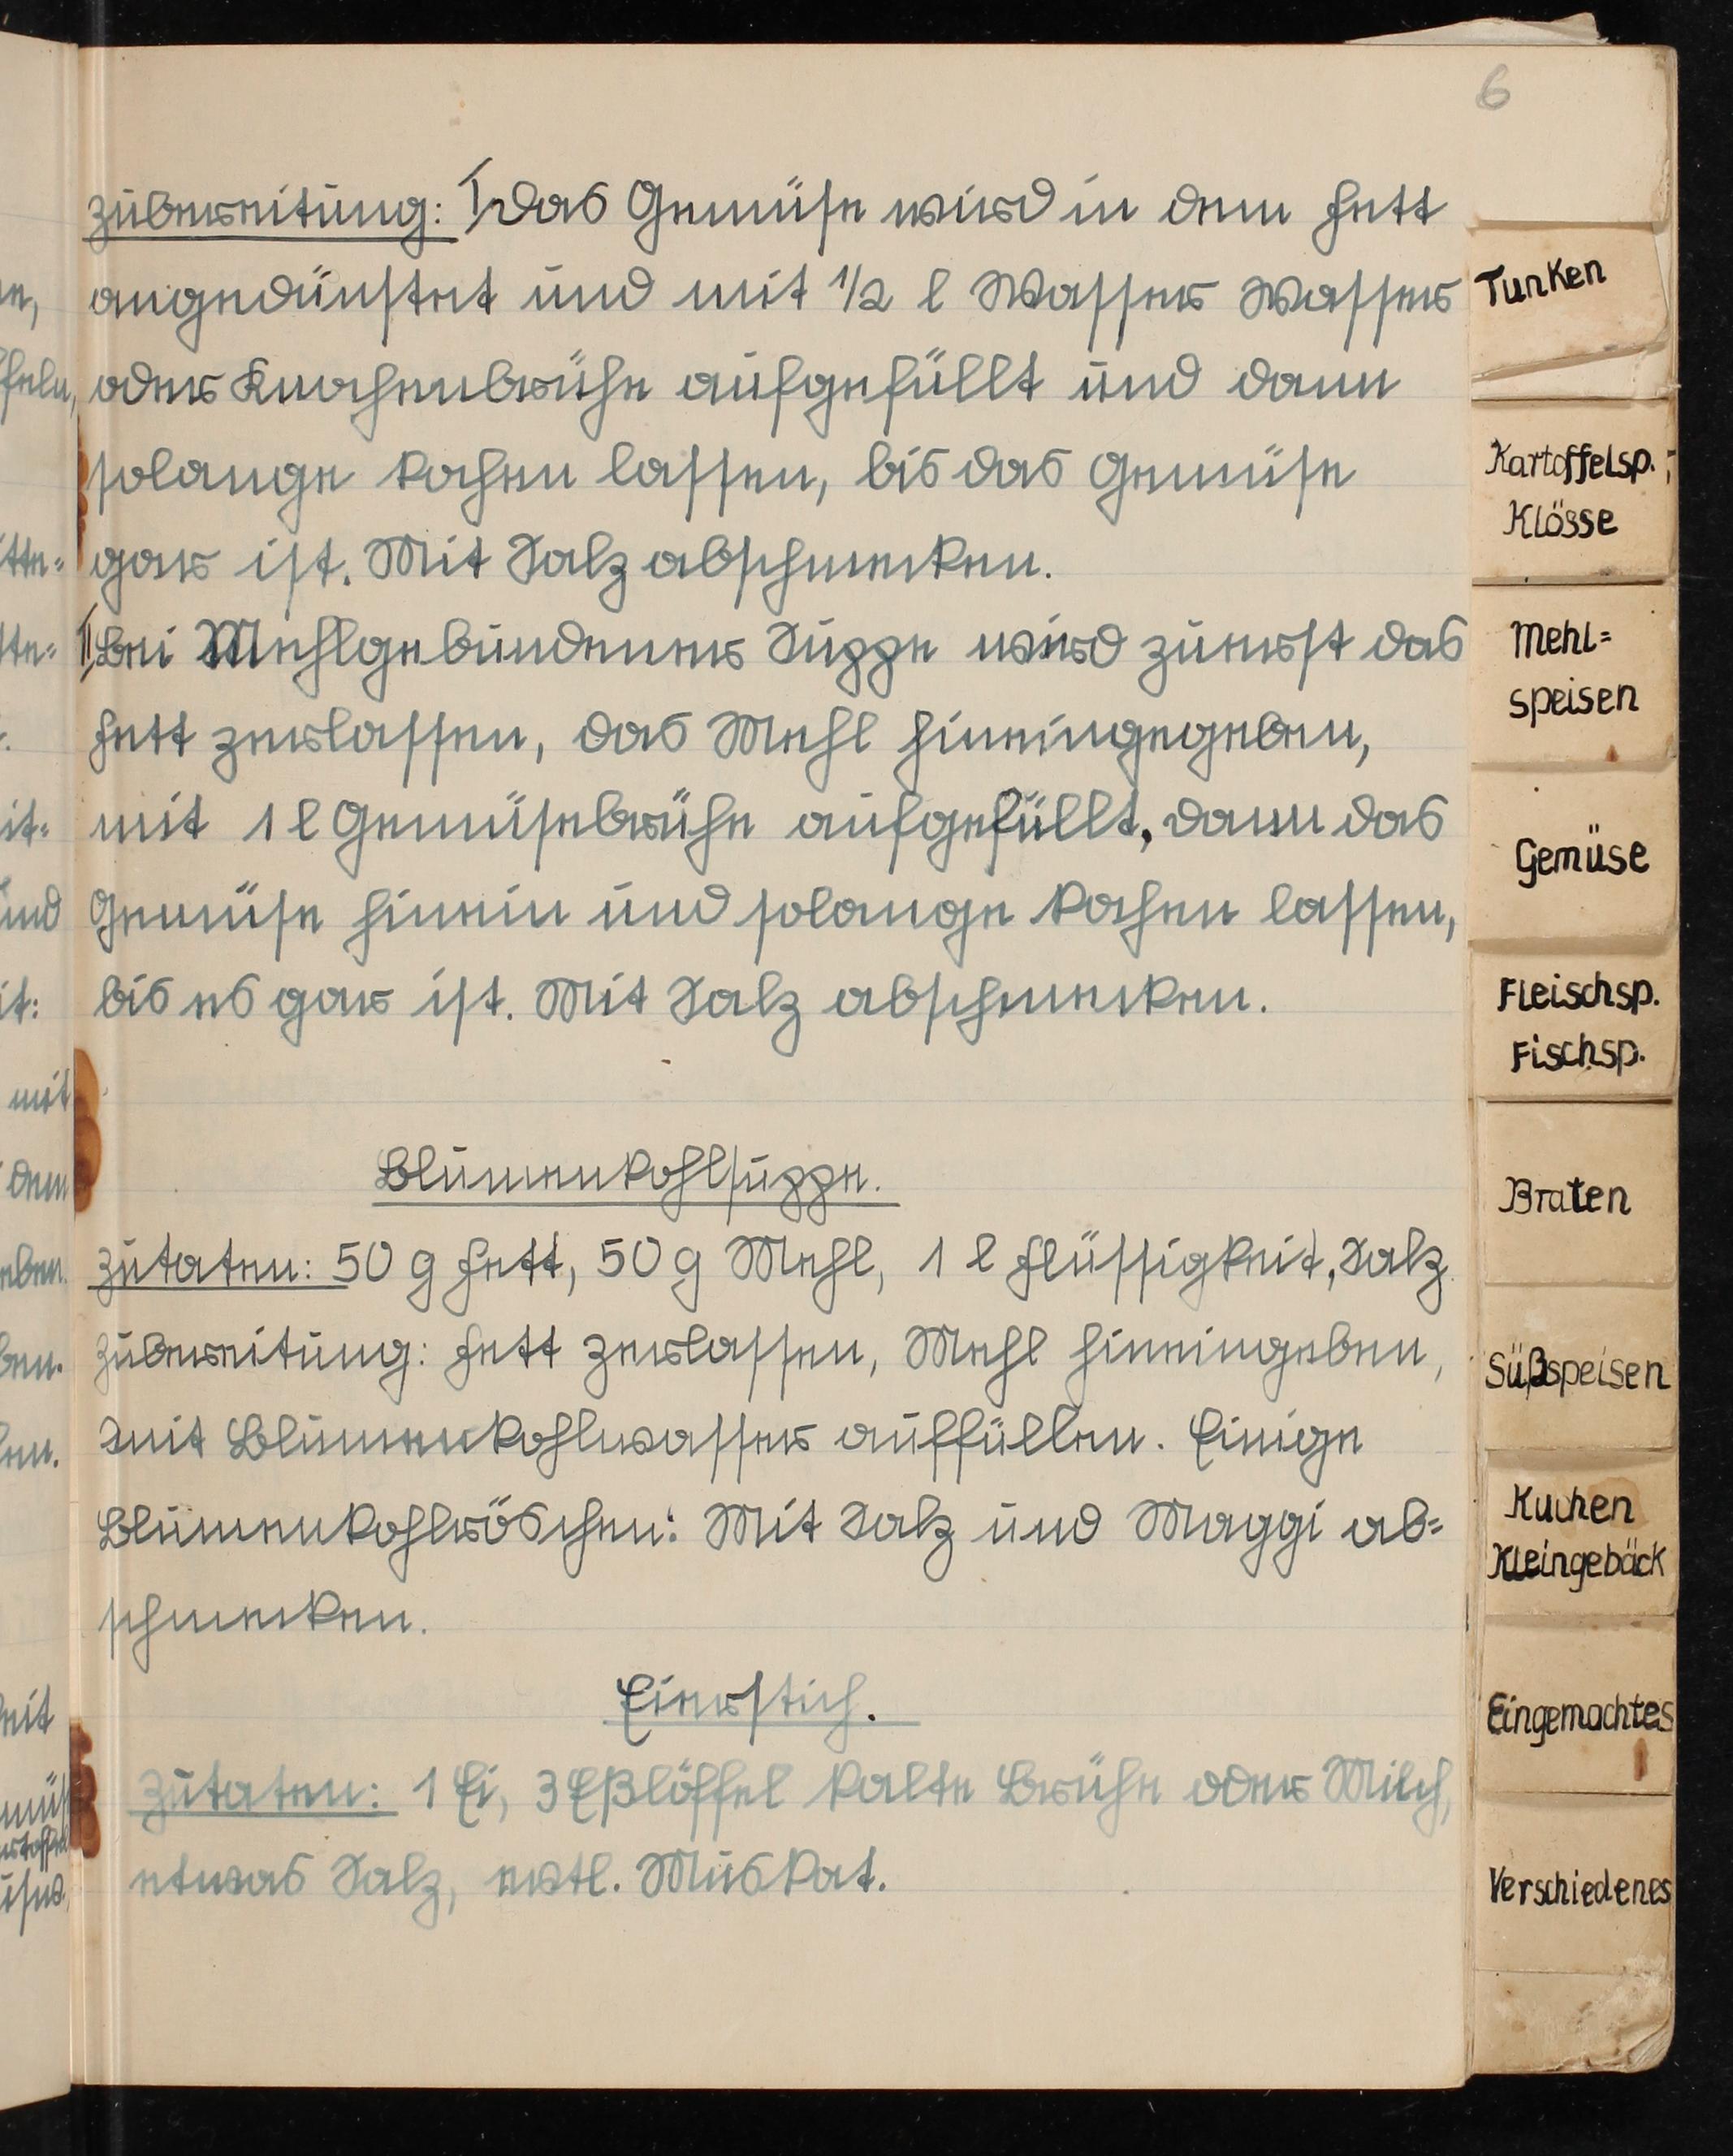 6
Zubereitung: I, Das Gemüse wird in dem Fett
angedünstet und mit 1/2 l Wasser Wasser
oder Knochenbrühe aufgefüllt und dann
solange kochen lassen, bis das Gemüse
gar ist. Mit Salz abschmecken.
II, Bei Mehlgebundener Suppe wird zuerst das
Fett zerlassen, das Mehl hineingegeben,
mit 1 l Gemüsebrühe aufgefüllt, dann das
Gemüse hinein und solange kochen lassen,
bis es gar ist. Mit Salz abschmecken.
Blumenkohlsuppe.
Zutaten: 50 g Fett, 50 g Mehl, 1 l Flüssigkeit, Salz
Zubereitung: Fett zerlassen, Mehl hineingeben,
mit Blumenkohlwasser auffüllen. Einige
Blumenkohlröschen: Mit Salz und Maggi ab=
schmecken.
Eierstich.
Zutaten: 1 Ei, 3 Eßlöffel kalte Brühe oder Milch,
etwas Salz, evtl. Muskat.
Tunken
Kartoffelsp.,
Klösse
Mehl=
speisen
Gemüse
Fleischsp.
Fischsp.
Braten
Süßspeisen
Kuchen
Kleingebäck
Eingemachtes
Verschiedenes